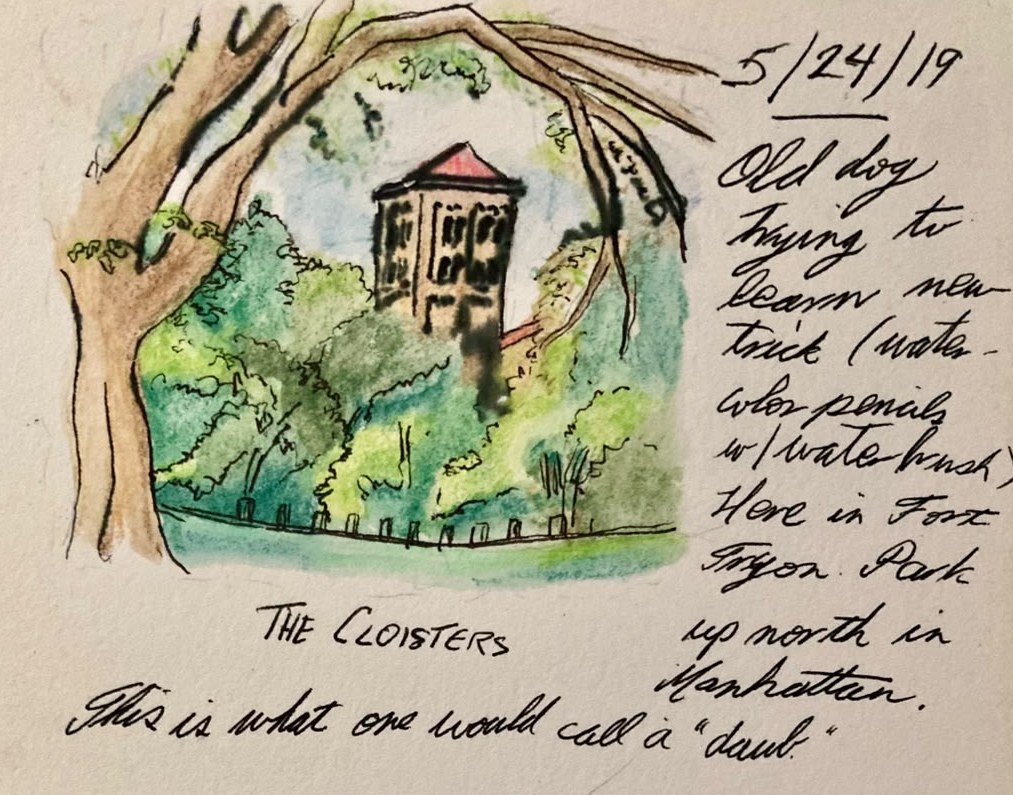 5/24/19
Old dog
trying to
learn new
trick (water-
color pencils
w/waterbrush)
Here in Fort
Tryon Park
up north in
Manhattan.
THE CLOISTERS
This is what one would call a "daub."